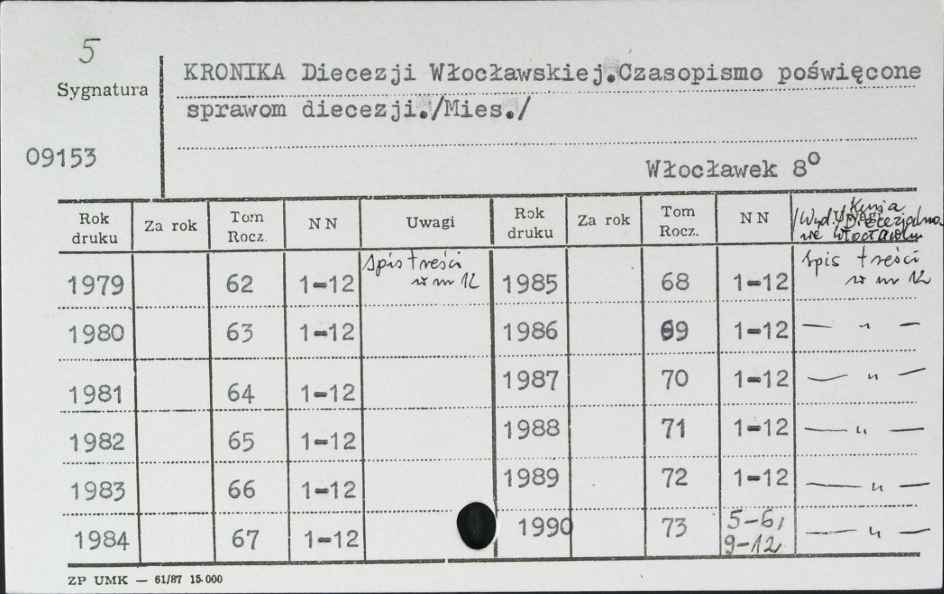 5
Sygnatura
09153
KRONIKA Diecezji Włocławskiej.Czasopismo poświęcone
sprawom diecezji./Mies./
Włocławek 8°
Rok druku Za rok Tom Rocz. NN Uwagi Rok druku Za rok Tom Rocz. NN Uwagi
/Wyd. Kuria Diecezjalna
we Włocławku
1979 62 1-12 spis treści w nr 12 1985 68 1-12 spis treści w nr 12
1980 63 1-12 1986 69 1-12 — " —
1981 64 1-12 1987 70 1-12 — " —
1982 65 1-12 1988 71 1-12 — " —
1983 66 1-12 1989 72 1-12 — " —
1984 67 1-12 1990 73 5-6, 9-12 — " —
ZP UMK — 61/87 15.000